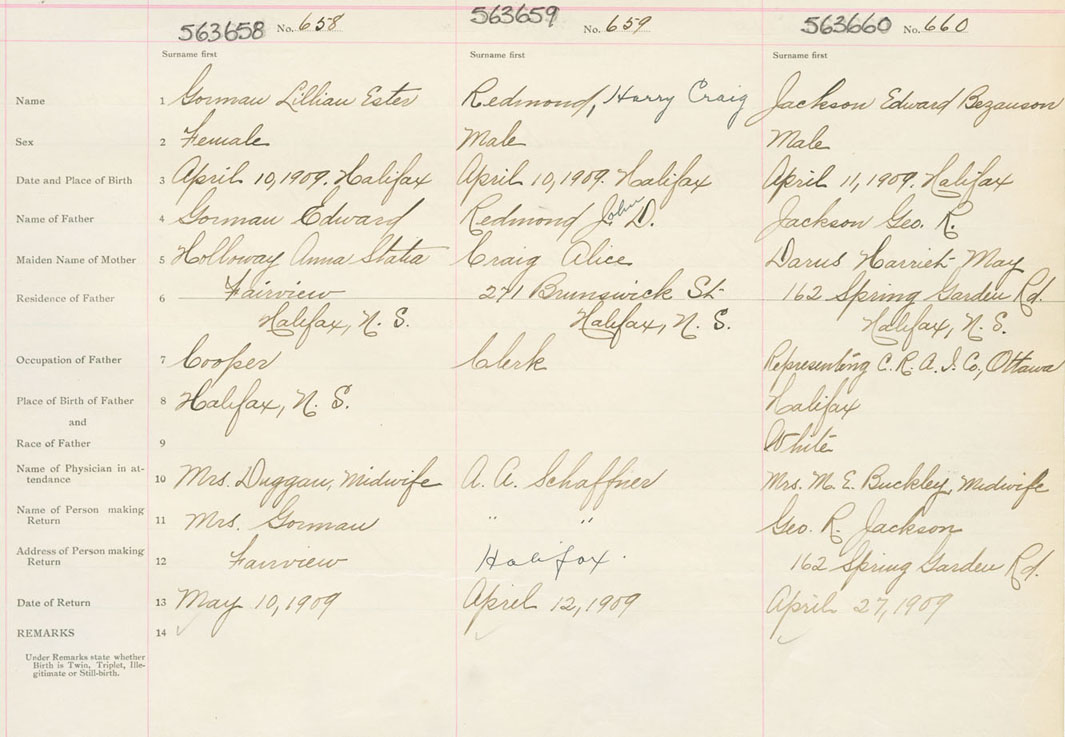 563658 No. 658 563659 No. 659 563660 No. 660
Surname first Surname first Surname first
Name 1 Gorman Lillian Ester Redmond, Harry Craig Jackson Edward Bezanson
Sex 2 Female Male Male
Date and Place of Birth 3 April 10, 1909. Halifax April 10, 1909. Halifax April 11, 1909. Halifax
Name of Father 4 Gorman Edward Redmond John D. Jackson Geo. R.
Maiden Name of Mother 5 Holloway Anna Statia Craig Alice Harriet May
Residence of Father 6 Fairview 271 Brunswick St 162 Spring Garden Rd.
Halifax, N. S. Halifax, N. S. Halifax, N. S.
Occupation of Father 7 Cooper Clerk Representing C. R. A. I. Co., Ottawa
Place of Birth of Father 8 Halifax, N. S. Halifax
and
Race of Father 9 White
Name of Physician in at-
tendance 10 Mrs. Duggan, Midwife A. A. Schaffner Mrs. M. E. Buckley, Midwife
Name of Person making
Return 11 Mrs. Gorman " " Geo. R. Jackson
Address of Person making
Return 12 Fairview Halifax. 162 Spring Garden Rd.
Date of Return 13 May 10, 1909 April 12, 1909 April 27, 1909
REMARKS 14
Under Remarks state whether
Birth is Twin, Triplet, Ille-
gitimate or Still-birth.